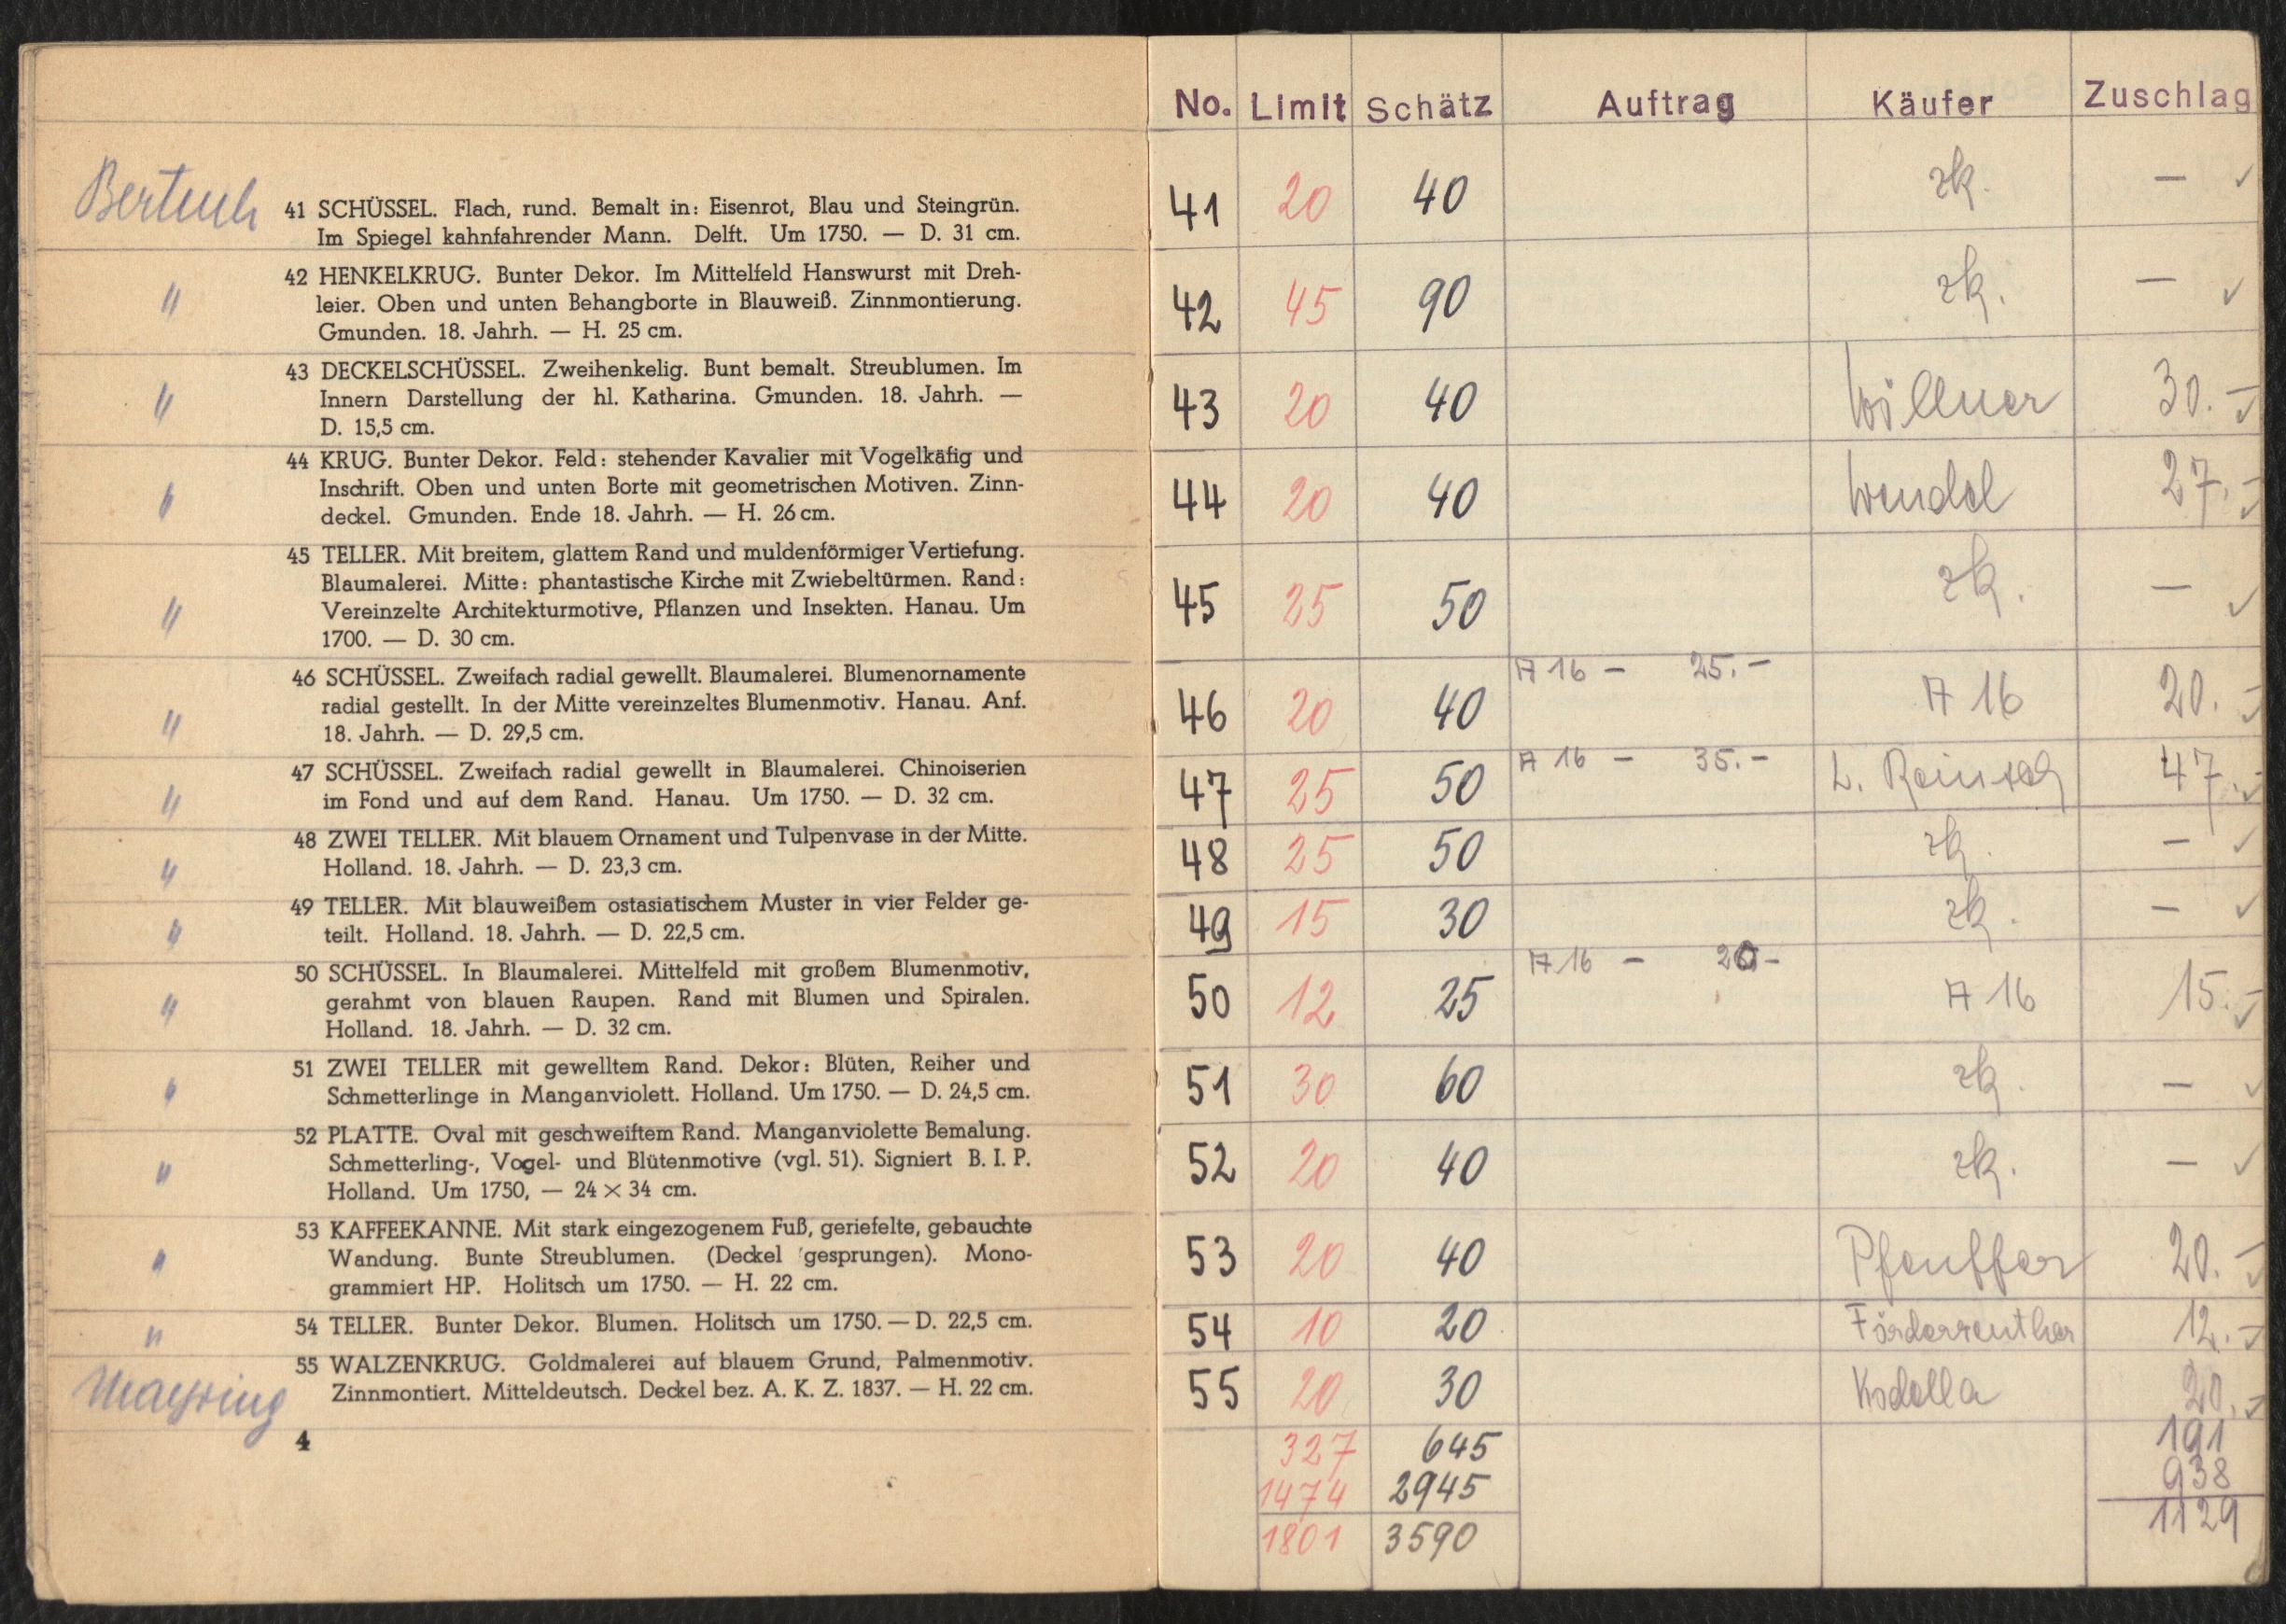 Bertuch
41 SCHÜSSEL. Flach, rund. Bemalt in: Eisenrot, Blau und Steingrün.
Im Spiegel kahnfahrender Mann. Delft. Um 1750. — D. 31 cm.
" 42 HENKELKRUG. Bunter Dekor. Im Mittelfeld Hanswurst mit Dreh-
leier. Oben und unten Behangborte in Blauweiß. Zinnmontierung.
Gmunden. 18. Jahrh. — H. 25 cm.
" 43 DECKELSCHÜSSEL. Zweihenkelig. Bunt bemalt. Streublumen. Im
Innern Darstellung der hl. Katharina. Gmunden. 18. Jahrh. —
D. 15,5 cm.
" 44 KRUG. Bunter Dekor. Feld: stehender Kavalier mit Vogelkäfig und
Inschrift. Oben und unten Borte mit geometrischen Motiven. Zinn-
deckel. Gmunden. Ende 18. Jahrh. — H. 26 cm.
" 45 TELLER. Mit breitem, glattem Rand und muldenförmiger Vertiefung.
Blaumalerei. Mitte: phantastische Kirche mit Zwiebeltürmen. Rand:
Vereinzelte Architekturmotive, Pflanzen und Insekten. Hanau. Um
1700. — D. 30 cm.
" 46 SCHÜSSEL. Zweifach radial gewellt. Blaumalerei. Blumenornamente
radial gestellt. In der Mitte vereinzeltes Blumenmotiv. Hanau. Anf.
18. Jahrh. — D. 29,5 cm.
" 47 SCHÜSSEL. Zweifach radial gewellt in Blaumalerei. Chinoiserien
im Fond und auf dem Rand. Hanau. Um 1750. — D. 32 cm.
" 48 ZWEI TELLER. Mit blauem Ornament und Tulpenvase in der Mitte.
Holland. 18. Jahrh. — D. 23,3 cm.
" 49 TELLER. Mit blauweißem ostasiatischem Muster in vier Felder ge-
teilt. Holland. 18. Jahrh. — D. 22,5 cm.
" 50 SCHÜSSEL. In Blaumalerei. Mittelfeld mit großem Blumenmotiv,
gerahmt von blauen Raupen. Rand mit Blumen und Spiralen.
Holland. 18. Jahrh. — D. 32 cm.
" 51 ZWEI TELLER mit gewelltem Rand. Dekor: Blüten, Reiher und
Schmetterlinge in Manganviolett. Holland. Um 1750. — D. 24,5 cm.
" 52 PLATTE. Oval mit geschweiftem Rand. Manganviolette Bemalung.
Schmetterling-, Vogel- und Blütenmotive (vgl. 51). Signiert B. I. P.
Holland. Um 1750, — 24 × 34 cm.
" 53 KAFFEEKANNE. Mit stark eingezogenem Fuß, geriefelte, gebauchte
Wandung. Bunte Streublumen. (Deckel gesprungen). Mono-
grammiert HP. Holitsch um 1750. — H. 22 cm.
" 54 TELLER. Bunter Dekor. Blumen. Holitsch um 1750. — D. 22,5 cm.
Mayring
55 WALZENKRUG. Goldmalerei auf blauem Grund, Palmenmotiv.
Zinnmontiert. Mitteldeutsch. Deckel bez. A. K. Z. 1837. — H. 22 cm.
4
No. Limit Schätz Auftrag Käufer Zuschlag
41 20 40 zk. — ✓
42 45 90 zk. — ✓
43 20 40 Willner 30.- ✓
44 20 40 Wendel 27.- ✓
45 25 50 zk. — ✓
46 20 40 A 16 — 25.- A 16 20.- ✓
47 25 50 A 16 — 35.- L. 47.- ✓
48 25 50 zk. — ✓
49 15 30 zk. — ✓
50 12 25 A 16 — 20- A 16 15.- ✓
51 30 60 zk. — ✓
52 20 40 zk. — ✓
53 20 40 Pfeuffer 20.- ✓
54 10 20 Förderreuther 12.- ✓
55 20 30 Kodella 20.- ✓
327 645 191
1474 2945 938
1801 3590 1129